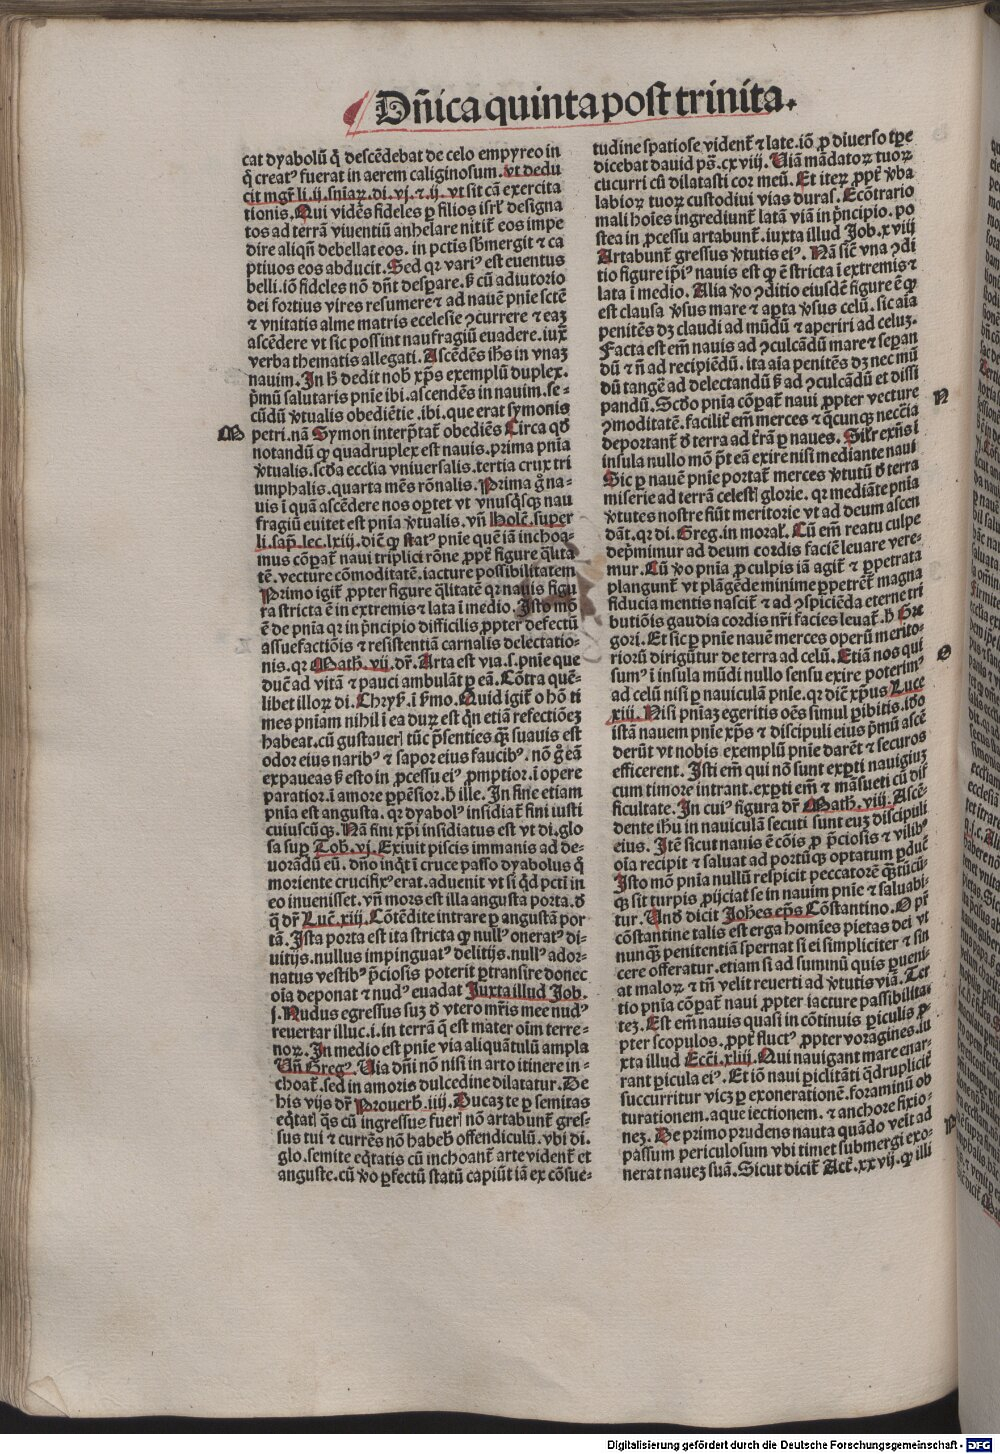 Dn̄ica quinta post trinita.
cat dyabolū q̄ descēdebat de celo empyreo in
q̄ creat⁹ fuerat in aerem caliginosum. vt dedu
cit mgr̄ li. ij. sniaꝝ. di. vj. ⁊ ij. vt sit cā exercita
tionis. Qui vidēs fideles ꝑ filios isrl̄ designa
tos ad terrā viuentiū anhelare nitit̄ eos impe
dire aliqn̄ debellat eos. in pctīs sb̄mergit ⁊ ca
ptiuos eos abducit. Sed qꝛ vari⁹ est euentus
belli. iō fideles nō dn̄t desꝑare. sꝫ cū adiutorio
dei fortius vires resumere ⁊ ad nauē pnie sctē
⁊ vnitatis alme matris ecclesie ꝯcurrere ⁊ eaꝫ
ascēdere vt sic possint naufragiū euadere. iux̄
verba thematis allegati. Ascēdēs ihs in vnaꝫ
nauim. In hͦ dedit nob̄ xp̄s exemplū duplex.
p̄mū salutaris pnie ibi. ascendēs in nauim. se-
cūdū ꝟtualis obediētie. ibi. que erat symonis
M petri. nā Symon interp̄tat̄ obediēs Circa qd̄
notandū ꝙ quadruplex est nauis. prima pnīa
ꝟtualis. scd̄a ecclīa vniuersalis. tertia crux tri
umphalis. quarta mēs rōnalis. Prima g̊ na-
uis ī quā ascēdere nos oꝑtet vt vnusq̄sqꝫ nau
fragiū euitet est pnīa ꝟtualis. vn̄ Holē. super
li. sap̄. lec. lxiij. diēt̄ ꝙ stat⁹ pnie quē iā inchoa-
mus cōꝑat̄ naui triplici rōne ꝓpt̄ figure q̄lita
tē. vecture cōmoditatē. iacture possibilitatem
Primo igit̄ ꝓpter figure q̄litatē qꝛ nauis figu
ra stricta ē in extremis ⁊ lata ī medio. Isto mō
ē de pnīa qꝛ in p̄ncipio difficilis ꝓpter defectū
assuefactiōis ⁊ resistentiā carnalis delectatio-
nis. qꝛ Math. vij. dr̄. Arta est via. s. pnie que
ducēt ad vitā ⁊ pauci ambulāt ꝑ eā. Cōtra quē-
libet illoꝝ di. Chrys̄. ī s̄mo. Quid igit̄ o hō ti
mes pniam nihil ī ea duꝝ est qn̄ etiā refectiōeꝫ
habeat. cū gustauerī tūc p̄senties qꝫ̄ suauis est
odor eius narib⁹ ⁊ sapor eius faucib⁹. nō g̊ eā
expaueas sꝫ esto in ꝓcessu ei⁹ ꝓmptior. ī opere
paratior. ī amore ꝓpēsior. h̄ ille. In fine etiam
pnīa est angusta. qꝛ dyabol⁹ insidiat̄ fini iusti
cuiuscūqꝫ. Nā fini xp̄i insidiatus est vt di. glo
sa suꝑ Tob. vj. Exiuit piscis immanis ad de-
uorādū eū. dn̄o inq̄t ī cruce passo dyabolus q̄
moriente crucifix⁹ erat. aduenit vt si qd̄ pcti in
eo inuenisset. vn̄ mors est illa angusta porta. d̄
q̄ dr̄ Luc̄. xiij. Cōtēdite intrare ꝑ angustā por
tā. Ista porta est ita stricta ꝙ null⁹ onerat⁹ di-
uitijs. nullus impinguat⁹ delitijs. null⁹ ador-
natus vestib⁹ p̄ciosis poterit ꝑtransire donec
oīa deponat ⁊ nud⁹ euadat Juxta illud Job.
j. Nudus egressus suꝫ d̄ vtero mr̄is mee nud⁹
reuertar illuc. i. in terrā q̄ est mater oīm terre-
noꝝ. In medio est pnie via aliquātulū ampla
Vn̄ Greg⁹. Via dn̄i nō nisi in arto itinere in-
choat̄. sed in amoris dulcedine dilatatur. De
his vijs dr̄ Prouerb̄. iiij. Ducaz te ꝑ semitas
eq̄tat̄ q̄s cū ingressus fuerī nō artabunt̄ gres-
sus tui ⁊ currēs nō habeb̄ offendiculū. vbi di.
glo. semite eq̄tatis cū inchoant̄ arte vident̄ et
anguste. cū ꝟo ꝑfectū statū capiūt iā ex cōsue-
tudine spatiose vident̄ ⁊ late. iō ꝓ diuerso tp̄e
dicebat dauid ps̄. cxviij. Uiā mādatoꝝ tuoꝝ
cucurri cū dilatasti cor meū. Et iteꝝ ꝓpt̄ ꝟba
labioꝝ tuoꝝ custodiui vias duras. Ecōtrario
mali hoīes ingrediunt̄ latā viā in p̄ncipio. po
stea in ꝓcessu artabunt̄. iuxta illud Job. xviij
Artabunt̄ gressus ꝟtutis ei⁹. Nā sic̄ vna ꝯdi
tio figure ip̄i⁹ nauis est ꝙ ē stricta ī extremis ⁊
lata ī medio. Alia ꝟo ꝯditio eiusdē figure ē ꝙ
est clausa ꝟsus mare ⁊ aꝑta ꝟsus celū. sic aīa
penitēs dꝫ claudi ad mūdū ⁊ aperiri ad celuꝫ.
Facta est em̄ nauis ad ꝯculcādū mare ⁊ seꝑan
dū ⁊ n̄ ad recipiēdū. ita aīa penitēs dꝫ nec mū
dū tangē ad delectandū sꝫ ad ꝯculcādū et dissi
pandū. Scd̄o pnīa cōꝑat̄ naui ꝓpter vecture
N ꝯmoditatē. facilit̄ em̄ merces ⁊ q̄cunqꝫ necc̄ia
deportant̄ d̄ terra ad t̄rā ꝑ naues. Silr̄ exn̄s ī
insula nullo mō pt̄ eā exire nisi mediante naui
Sic ꝑ nauē pnie portat̄ merces ꝟtutū d̄ terra
miserie ad terrā celestī glorie. qꝛ mediāte pnīa
ꝟtutes nostre fiūt meritorie vt ad deum ascen
dāt. qꝛ di. Greg. in moral̄. Cū em̄ reatu culpe
dep̄mimur ad deum cordis faciē leuare vere-
mur. Cū ꝟo pnīa ꝓ culpis iā agit̄ ⁊ ꝑpetrata
plangunt̄ vt plāgēde minime ꝑpetrēt̄ magna
fiducia mentis nascit̄ ⁊ ad ꝯspiciēda eterne tri
butiōis gaudia cordis nr̄i facies leuat̄. h̄ Gre
gori. Et sic ꝑ pnie nauē merces operū merito-
O rioꝝ dirigūtur de terra ad celū. Etiā nos qui
sum⁹ ī insula mūdi nullo sensu exire poterim⁹
ad celū nisi ꝑ nauiculā pnie. qꝛ diēt xp̄us Luce
xiij. Nisi pniaꝫ egeritis oēs simul ꝑibitis. Ido
istā nauem pnie xp̄s ⁊ discipuli eius p̄mū ascē
derūt vt nobis exemplū pnie darēt ⁊ securos
efficerent. Isti em̄ qui nō sunt exꝑti nauigiuꝫ
cum timore intrant. exꝑti em̄ ⁊ māsueti cū dif
ficultate. In cui⁹ figura dr̄ Math. viij. Ascē-
dente ihu in nauiculā secuti sunt euꝫ discipuli
eius. Itē sicut nauis ē cōis ꝓ p̄ciosis ⁊ vilib⁹
oīa recipit ⁊ saluat ad portūqꝫ optatum ꝑducit
Isto mō pnīa nullū respicit peccatorē qꝫ̄tūcū-
qꝫ sit turpis ꝓijciat̄ se in nauim pnie ⁊ saluabi-
tur. Und̄ dicit Joh̄es ep̄s Cōstantino. O pr̄
cōstantine talis est erga homīes pietas dei vt
nunqꝫ penitentiā spernat si ei simpliciter ⁊ sin
cere offeratur. etiam si ad summū quis ꝑueni-
at maloꝝ ⁊ tn̄ velit reuerti ad ꝟtutis viā. Ter
tio pnīa cōꝑat̄ naui ꝓpter iacture passibilita-
teꝫ. Est em̄ nauis quasi in cōtinuis ꝑiculis ꝓ
pter scopulos. ꝓpt̄ fluct⁹ ꝓpter voragines. iu
xta illud Eccī. xliij. Qui nauigant mare enar-
rant ꝑicula ei⁹. Et iō naui ꝑiclitāti q̄druplicit̄
succurritur vicꝫ ꝑ exonerationē. foraminū ob
turationem. aque iectionem. ⁊ anchore fixio-
neꝫ. De primo prudens nauta quādo velt ad
passum periculosum vbi timet submergi exo-
nerat nauēꝫ suā. Sicut dicit̄ Act̄. xxvij. ꝙ illi
Digitalisierung gefördert durch die Deutsche Forschungsgemeinschaft - DFG